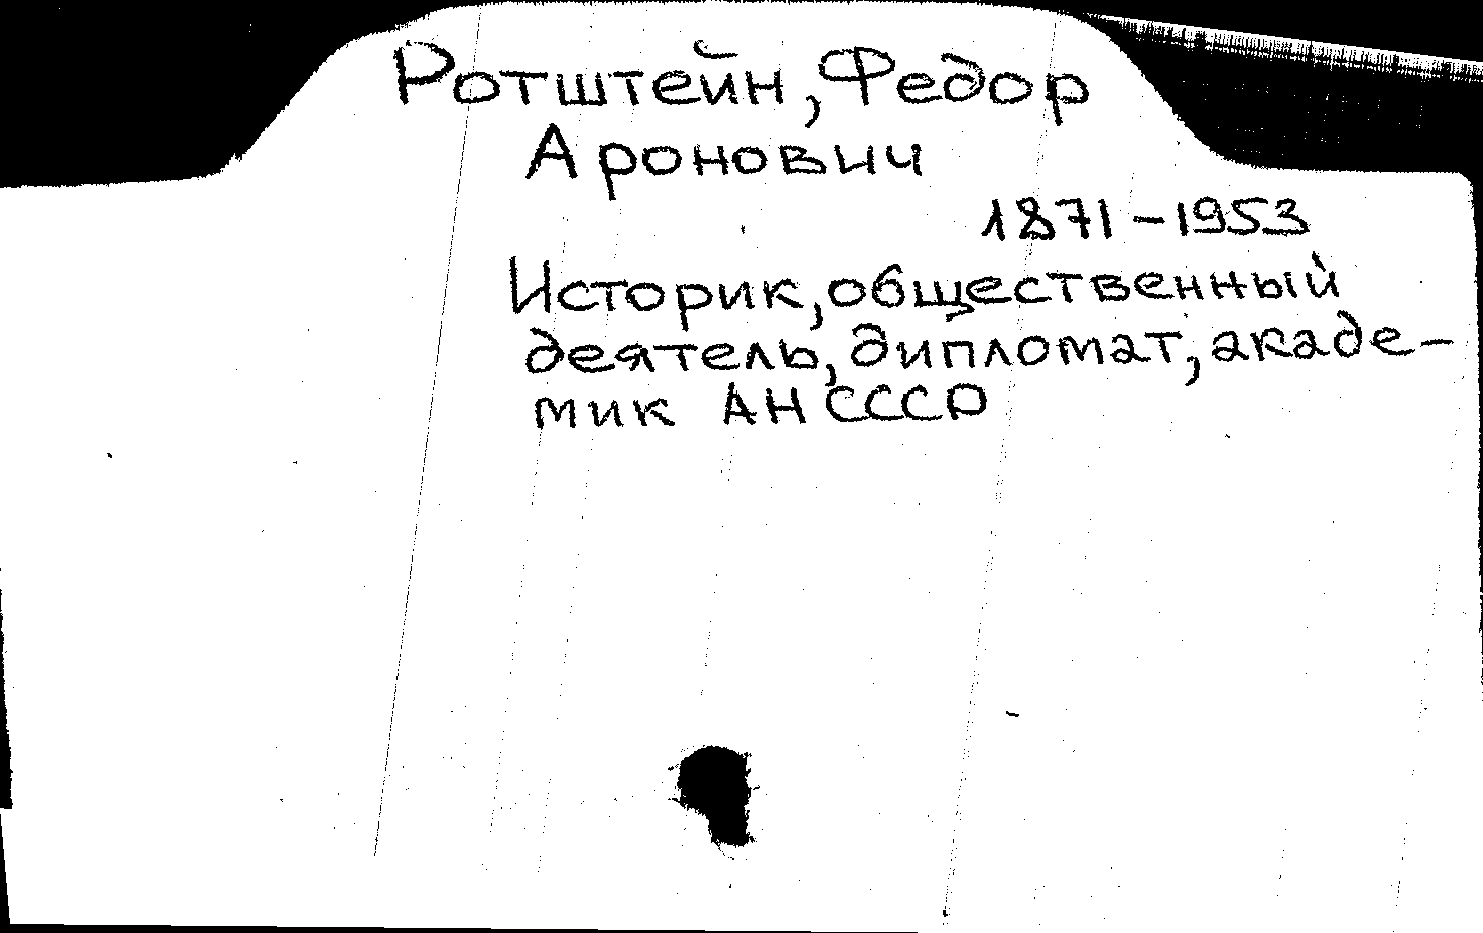 Ротштейн, Федор
Аронович
1871-1953
Историк, общественный
деятель, дипломат, акаде-
мик АН СССР